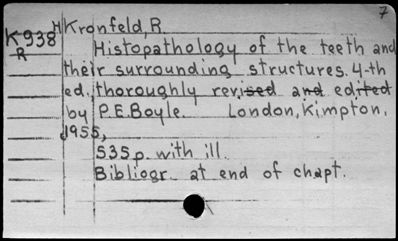 7
K938
R
Kronfeld, R.
Histopathology of the teeth and
their surrounding structures. 4-th
ed., thoroughly revised and edited
by P.E. Boyle. London, Kimpton,
1955,
535 p. with ill.
Bibliogr. at end of chapt.